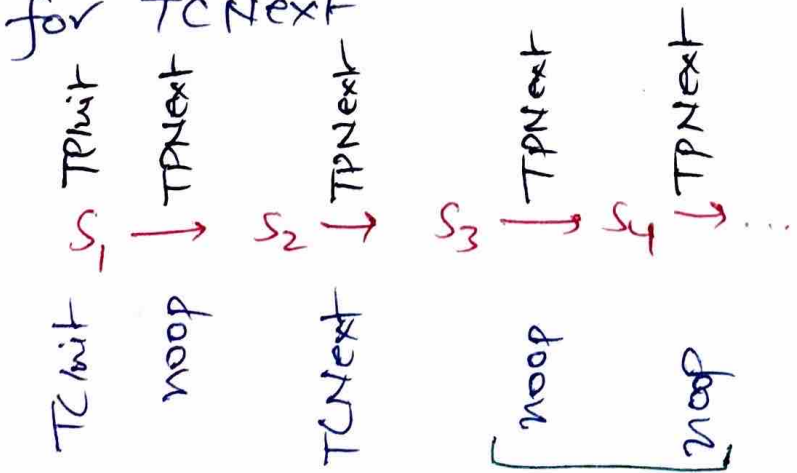 for TCNext
TPInit TPNext TPNext TPNext TPNext
S1 → S2 → S3 → S4 → ...
TCInit noop TCNext noop noop